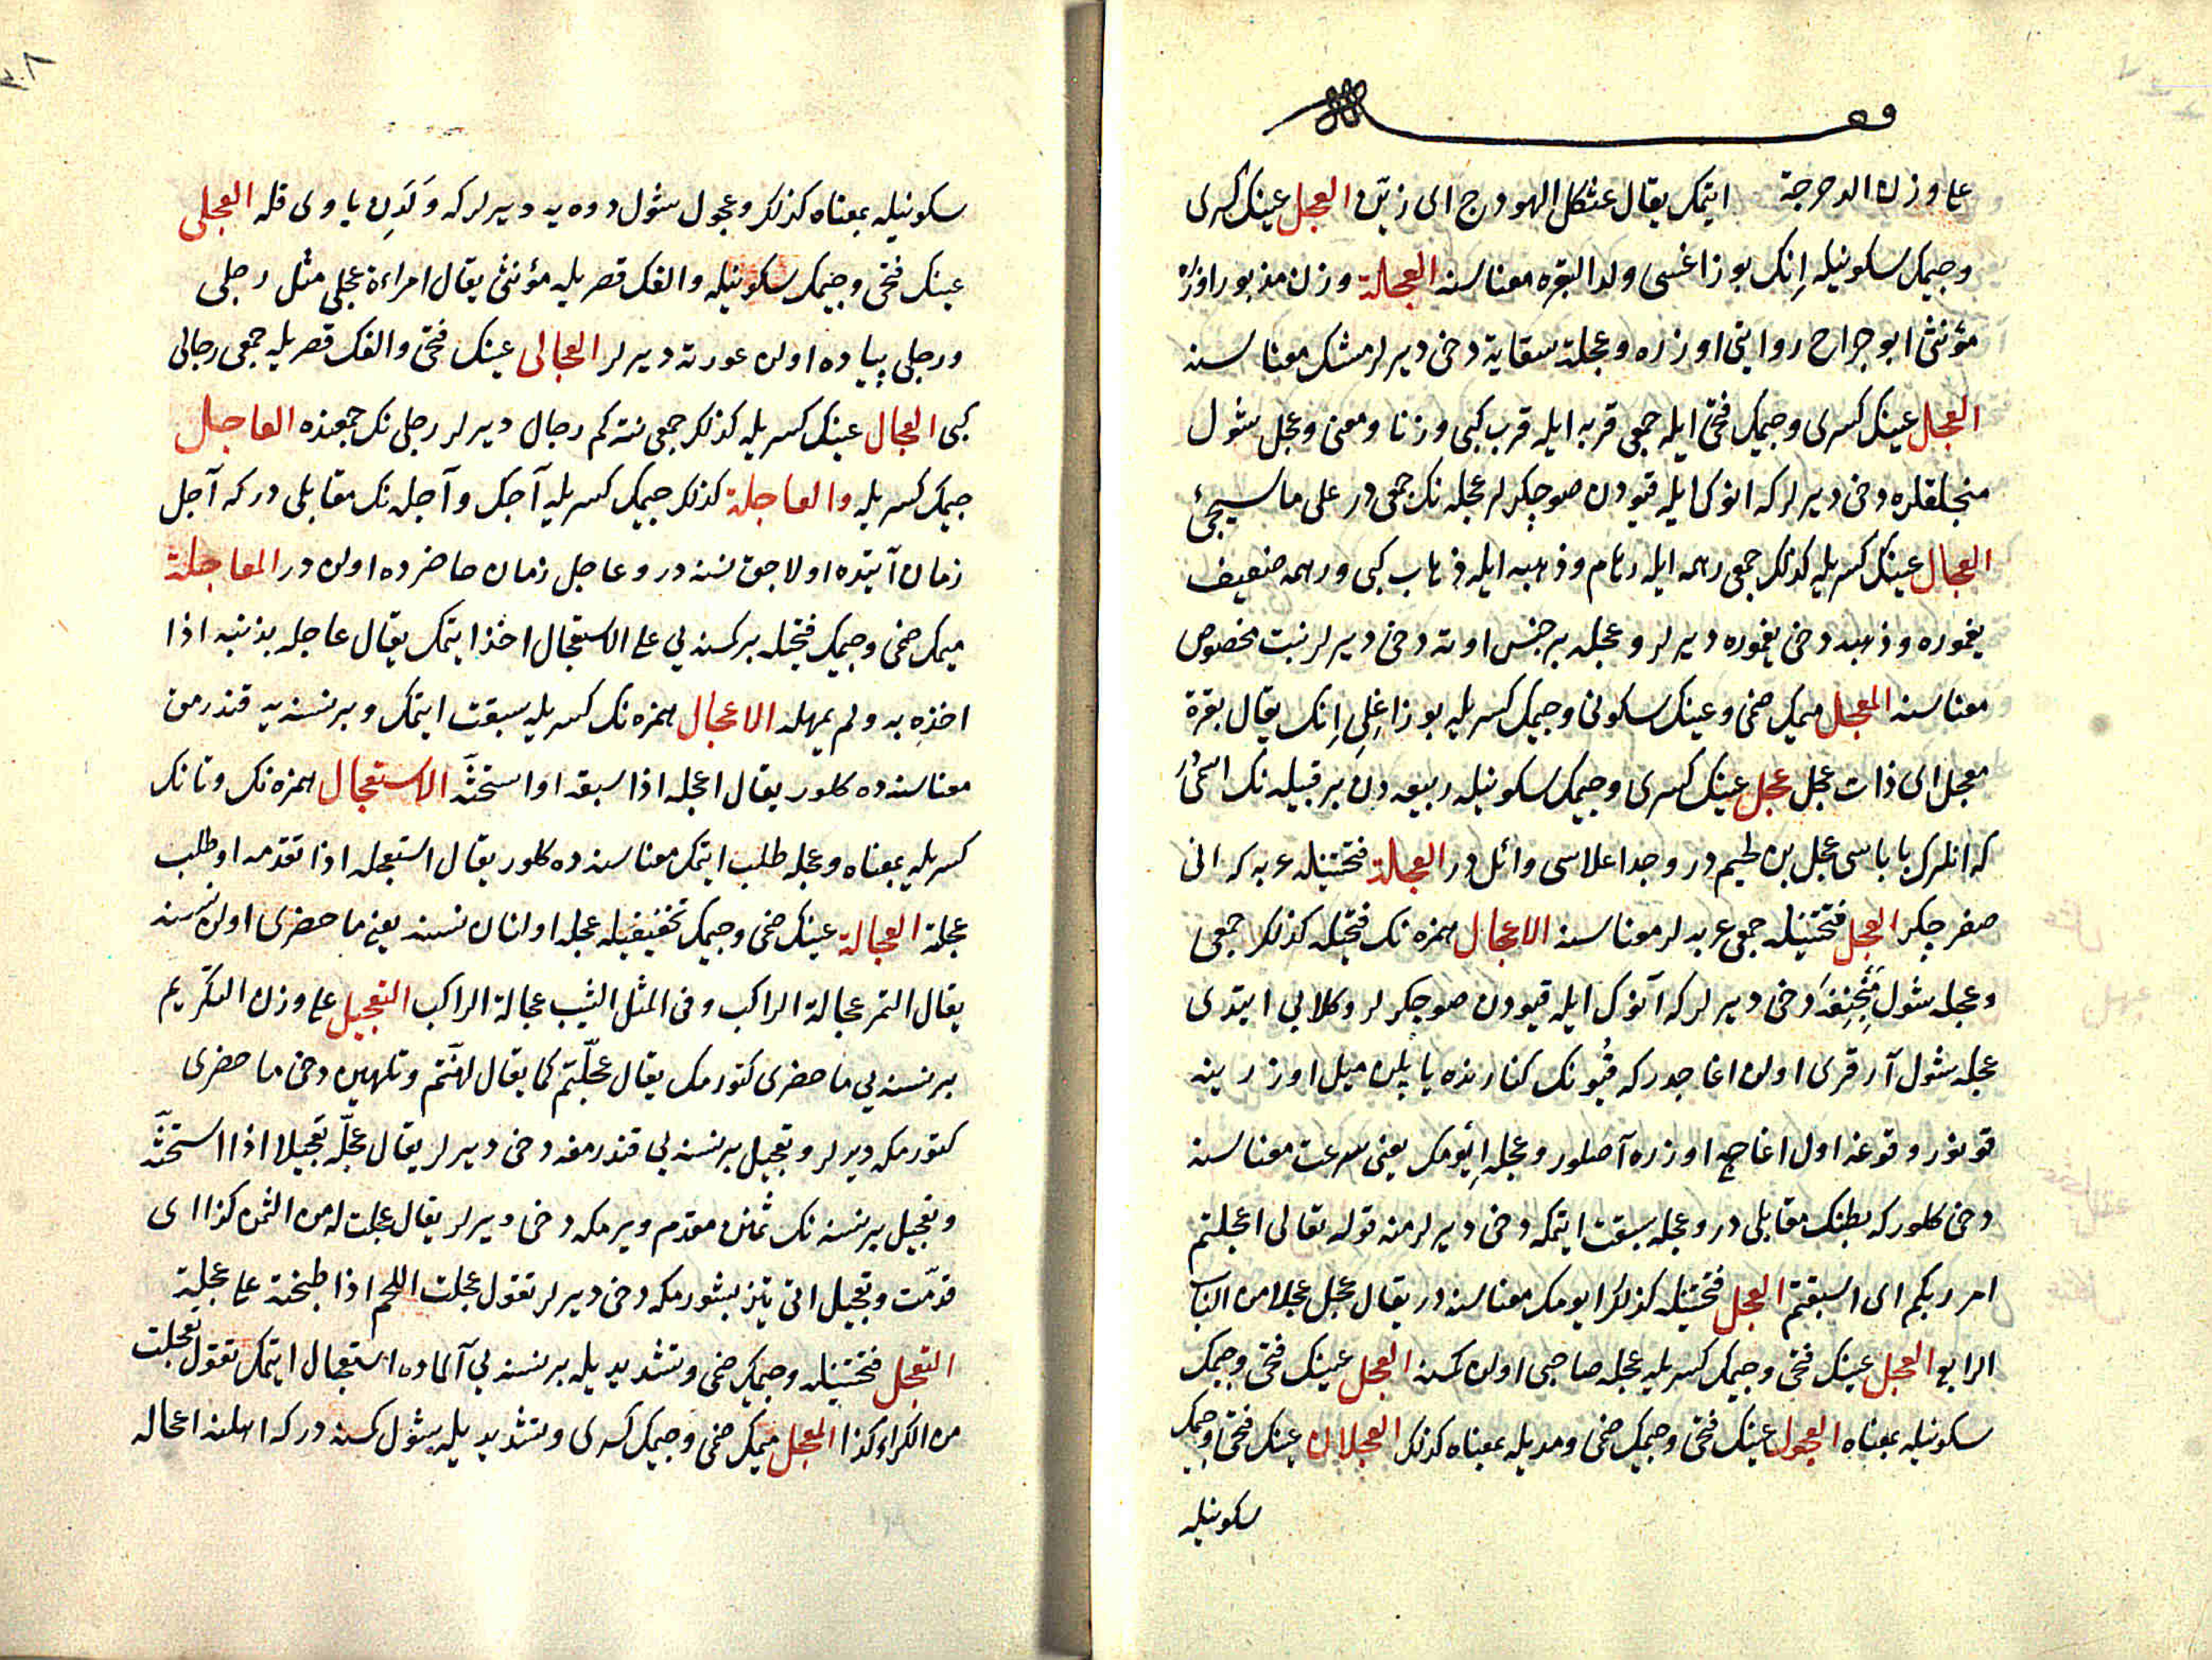 وقف
علی وزن الدحرجة ایتمك یقال عثكل الهودج ای زینه العجل عینك كسری
وجیمك سكونیله اِنك بوزاغسی ولد البقره معناسنه العجلة وزن مذبور اوزره
مؤنثی ابو جراح روایتی اوزره وعجلة سقایة دخی دیرلر مشك معناسنه
العجل عینك كسری وجیمك فتحی ایله جمعی قربه ایله قرب كبی وزنا ومعنی وعجل شول
منجلقلره دخی دیرلر كه انوك ایله قیودن صو چكرلر عجله نك جمعی در علی ما سیجئ
العجال عینك كسریله كذلك جمعی رهمه ایله رهام وذهبه ایله ذهاب كبی ورهمه ضعیف
یغموره وذهبه دخی یغموره دیرلر وعجله بر جنس اوته دخی دیرلر نبت مخصوص
معناسنه المعجل میمك ضمی وعینك سكونی وجیمك كسریله بوزاغلی اِنك یقال بقرة
معجل ای ذات عجل عجل عینك كسری وجیمك سكونیله ربیعه دن بر قبیله نك اسمی در
كه انلرك باباسی عجل بن لحیم در وجد اعلاسی وائل در العجلة فتحتینله عربه كه انی
صغر چكر العجل فتحتینله جمعی عربه لر معناسنه الاعجال همزه نك فتحیله كذلك جمعی
وعجله شول منجنقه دخی دیرلر كه آنوك ایله قیودن صو چكرلر وكلابی ایتدی
عجله شول آرقری اولن اغاجدر كه قُیونك كنارنده یاپلن میل اوزرینه
قونور وقوغه اول اغاجه اوزره آصلور وعجله اِیومك یعنی سرعت معناسنه
دخی كلور كه بطئك مقابلی در وعجله سبقت ایتمكه دخی دیرلر منه قوله تعالی اعجلتم
امر ربكم ای اسبقتم العجل فتحتینله كذلك ایومك معناسنه در یقال عجل عجلا من الباب
الرابع العجل عینك فتحی وجیمك كسریله عجله صاحبی اولن كمسنه العجل عینك فتحی وجیمك
سكونیله بمعناه العجول عینك فتحی وجیمك ضمی ومدیله بمعناه كذلك العجلان عینك فتحی وجیمك
سكونیله
٣٠٨
سكونیله بمعناه كذلك وعجول شول دوه یه دیرلر كه وَلَدِن یاوی قله العجلی
عینك فتحی وجیمك سكونیله والفك قصریله مؤنثی یقال امراءة عجلی مثل رجلی
ورجلی پیاده اولن عورته دیرلر العجالی عینك فتحی والفك قصریله جمعی رجالی
كبی العجال عینك كسریله كذلك جمعی نته كم رجال دیرلر رجلی نك جمعنده العاجل
جیمك كسریله والعاجلة كذلك جیمك كسریله آجك وآجله نك مقابلی در كه آجل
زمان آتیده اولاجق نسنه در وعاجل زمان حاضرده اولن در المعاجلة
میمك ضمی وجیمك فتحیله بر كمسنه یی علی الاستعجال اخذ ایتمك یقال عاجله بذنبه اذا
اخذه به ولم یمهله الاعجال همزه نك كسریله سبقت ایتمك وبر نسنه یه قندرمق
معناسنه ده كلور یقال اعجله اذا سبقه او استحثه الاستعجال همزه نك وتانك
كسریله بمعناه وعجله طلب ایتمك معناسنه ده كلور یقال استعجله اذا تقدمه او طلب
عجلة العجالة عینك ضمی وجیمك تخفیفیله عجله اولنان نسنه یعنی ما حضری اولن نسنه
یقال التمر عجالة الراكب وفی المثل الثیب عجالة الراكب التعجیل علی وزن التكریم
بر نسنه یی ما حضری كتورمك یقال عجّلتم كما یقال لهّنتم وتلهین دخی ما حضری
كتورمكه دیرلر وتعجیل بر نسنه یی قندرمغه دخی دیرلر یقال عجّله تعجیلا اذا استحثّه
وتعجیل بر نسنه نك ثمنن مقدم ویرمكه دخی دیرلر یقال عجلت له من الثمن كذا ای
قدّمت وتعجیل اتی تیز بشورمكه دخی دیرلر تقول عجلت اللحم اذا طبخته علی عجلة
التعجل فتحتینله وجیمك ضمی وتشدیدیله بر نسنه یی آلماده استعجال ایتمك تقول تعجلت
من الكراء كذا المعجل میمك ضمی وجیمك كسری وتشدیدیله شول كمسنه در كه اهلنه اعجاله